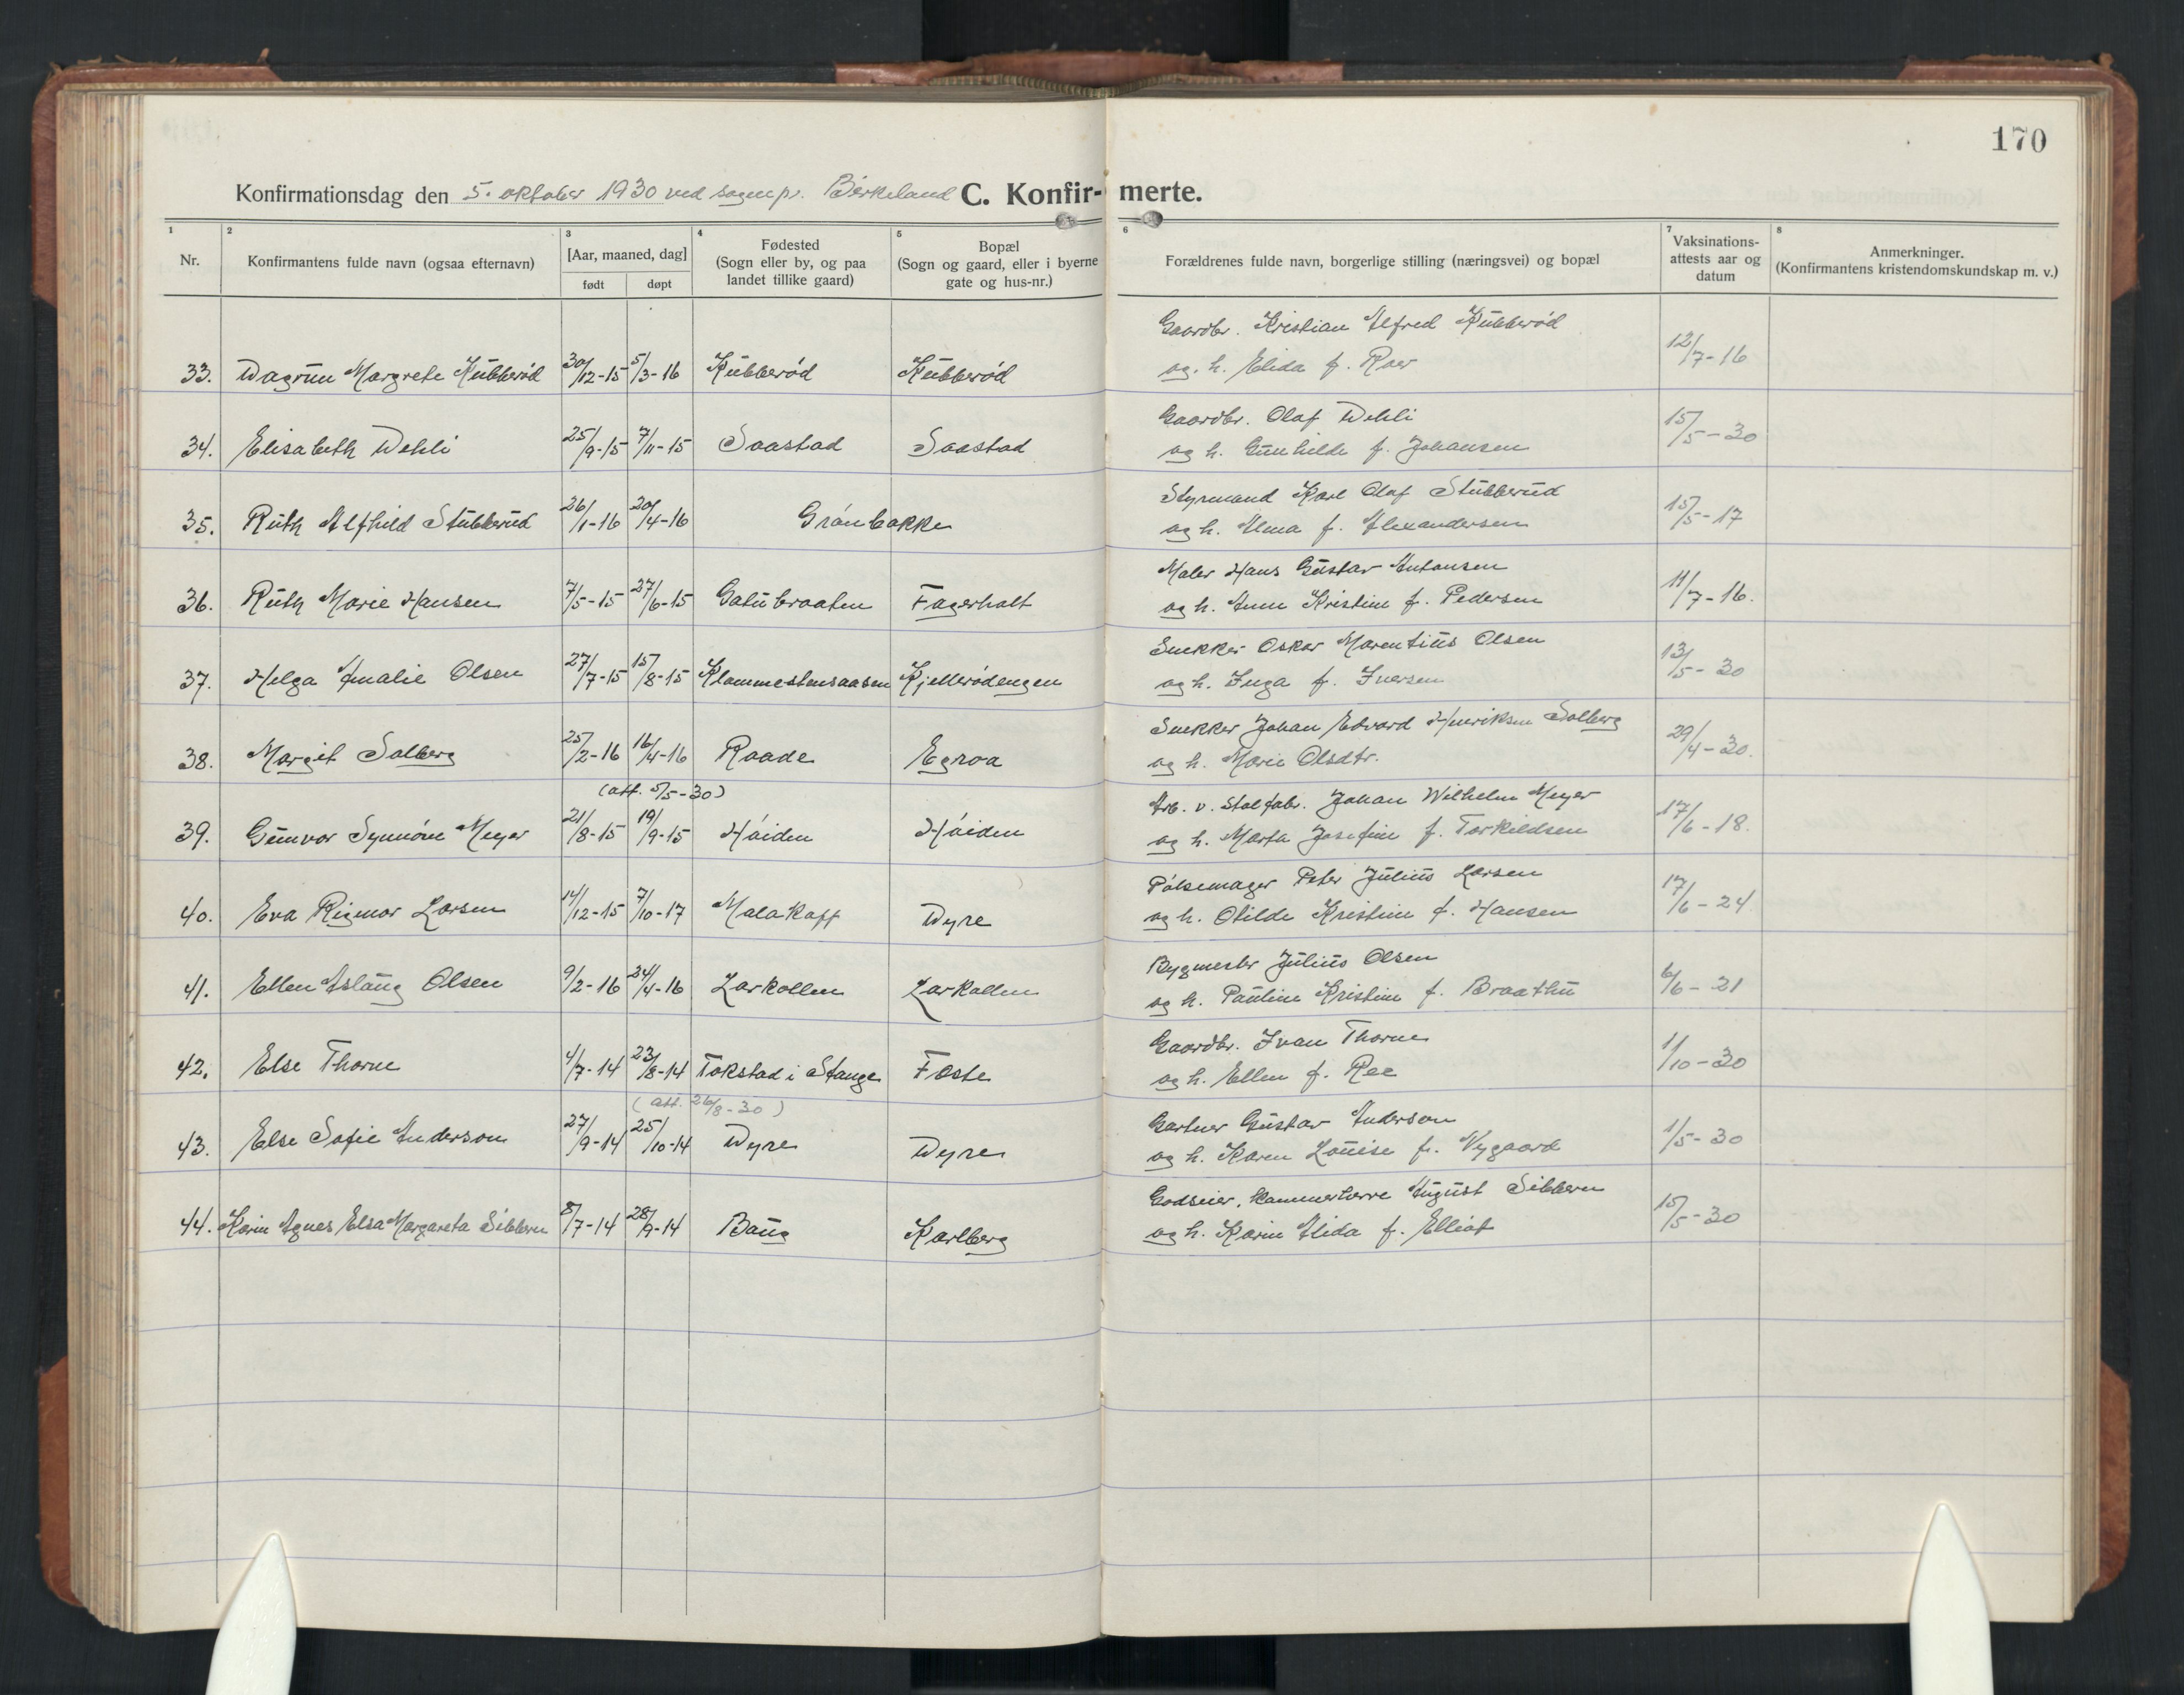 170
Konfirmationsdag den 5. oktober 1930 ved sognepr. Birkeland C. Konfir- merte.
1 2 3 4 5 6 7 8
Nr. Konfirmantens fulde navn (ogsaa efternavn) [Aar, maaned, dag] født døpt Fødested (Sogn eller by, og paa landet tillike gaard) Bopæl (Sogn og gaard, eller i byerne gate og hus-nr.) Forældrenes fulde navn, borgerlige stilling (næringsvei) og bopæl Vaksinations-attests aar og datum Anmerkninger. (Konfirmantens kristendomskundskap m. v.)
Gaardbr. Kristian Alfred Kubberød
33. Dagrun Margrete Kubberød 30/12-15 5/3-16 Kubberød Kubberød og h. Elida f. Roer 12/7-16
Gaardbr. Olaf Dehli
34. Elisabeth Dehli 25/9-15 7/11-15 Saastad Saastad og h. Gunhilde f. Johansen 15/5-30
Styrmand Karl Olaf Stubberud
35. Ruth Alfhild Stubberud 26/1-16 20/4-16 Grønbakke og h. Alma f. Alexandersen 15/5-17
Maler Hans Gustav Antonsen
36. Ruth Marie Hansen 7/5-15 27/6-15 Gatubraaten Fagerholt og h. Anna Kristine f. Pedersen 11/7-16.
Snekker Oskar Marentius Olsen
37. Helga Amalie Olsen 27/7-15 15/8-15 Klommestensaasen Kjellerødengen og h. Inga f. Iversen 13/5-30
Snekker Johan Edvard Henriksen Solberg
38. Margit Solberg 25/2-16 16/4-16 Raade Egroa og h. Marie Olsdtr. 29/4-30.
(att. 5/5-30)
Arb. v. Stolfabr. Johan Wilhelm Meyer
39. Gunvor Synnøve Meyer 21/8-15 19/9-15 Høiden Høiden og h. Marta Josefine f. Torkildsen 17/6-18.
Pølsemager Peter Julius Larsen
40. Eva Rigmor Larsen 14/12-15 7/10-17 Malakoff Dyre og h. Otilde Kristine f. Hansen 17/6-24
Bygmester Julius Olsen
41. Ellen Aslaug Olsen 9/2-16 24/4-16 Larkollen Larkollen og h. Pauline Kristine f. Braathu 6/6-21
Gaardbr. Ivan Thorne
42. Else Thorne 4/7-14 23/8-14 Tokstad i Stange Foste og h. Ellen f. Ree 1/10-30
(att. 26/8-30)
Gartner Gustav Anderson
43. Else Sofie Anderson 27/9-14 25/10-14 Dyre Dyre og h. Karen Louise f. Nygaard 1/5-30
Godseier, Kammerherre August Sibbern
44. Karin Agnes Elsa Margareta Sibbern 8/7-14 28/9-14 Baug Karlberg og h. Karin Alida f. Elliot 15/5-30